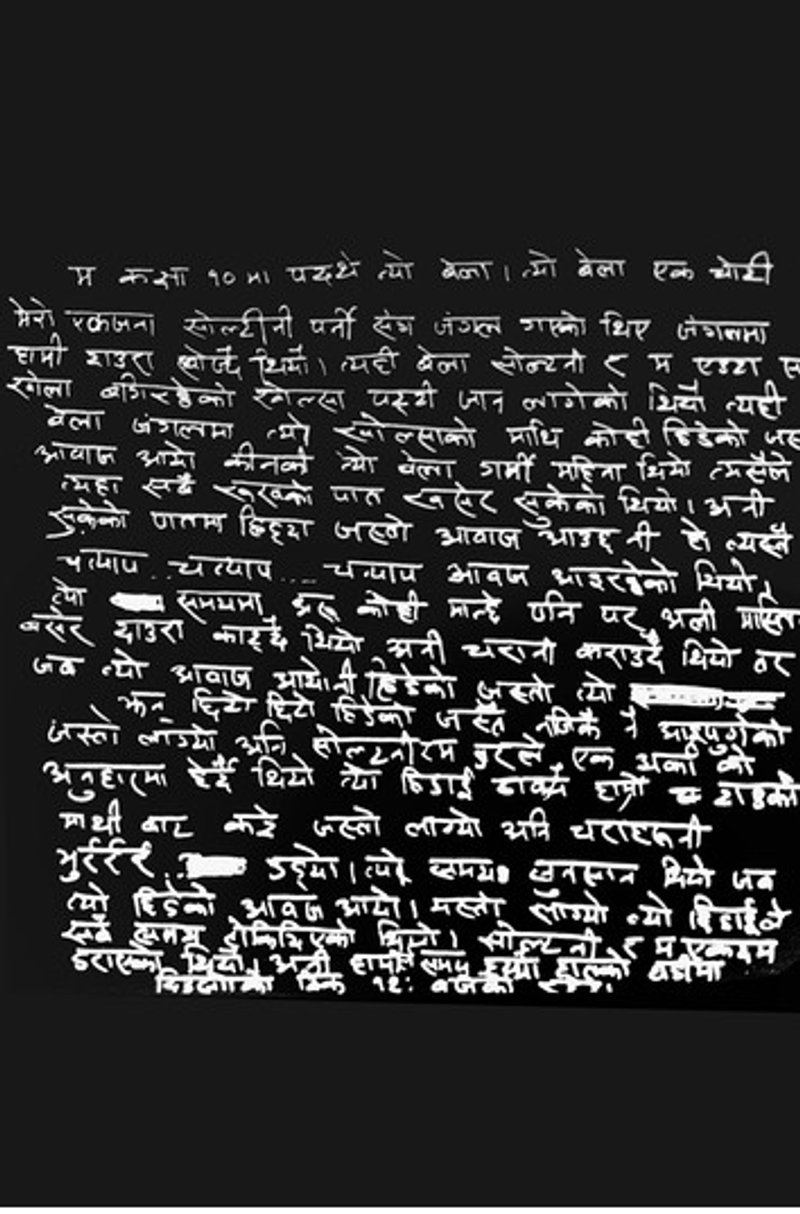 म कक्षा १० मा पढ्थे त्यो बेला । त्यो बेला एक चोटी
मेरो एकजना सोल्टीनी पर्ने संग जंगल गएको थिए जंगलमा
हामी दाउरा खोज्दै थियौ । त्यही बेला सोल्टनी र म एउटा
खोला बगिरहेको खोल्सा पट्टी जान लागेको थियौ त्यही
बेला जंगलमा त्यो खोल्साको माथि कोही हिडेको
आवाज आयो कीनकी त्यो बेला गर्मी महिना थियो त्यसैले
त्यहा सबै रुखको पात खसेर सुकेको थियो । अनी
सुकेको पातमा हिड्दा जस्तो आवाज आउछ नी हो त्यस्तै
चत्याप .. चत्याप .... चत्याप आवाज आइरहेको थियो,
त्यो समयमा अरु कोही मान्छे पनि पर अली
बसेर दाउरा काट्दै थियो अनी चरानी कराउदै थियो तर
जब त्यो आवाज आयोनी हिडेको जस्तो त्यो
झन् छिटो छिटो हिडेको जस्तै नजिकै नै आइपुगेको
जस्तो लाग्यो अनि सोल्टनीरम डरले एक अर्का को
अनुहारमा हेर्दै थियो त्यो हिडाई हाम्रो टाउको
माथी बाट करे जस्तो लाग्यो अनि चराहरुनी
भुर्रर्रर्र .. उड्यो । त्यो समय सुनसान थियो जब
त्यो हिडेको आवाज आयो । यस्तो लाग्यो त्यो हिडाईले
सबै समय रोकिदिएको थियो । सोल्टनी र म एकदम
डराएका थियौ । अनी हामीले समय हेर्यौ हातको घडीमा
ठिक १२: बजेको